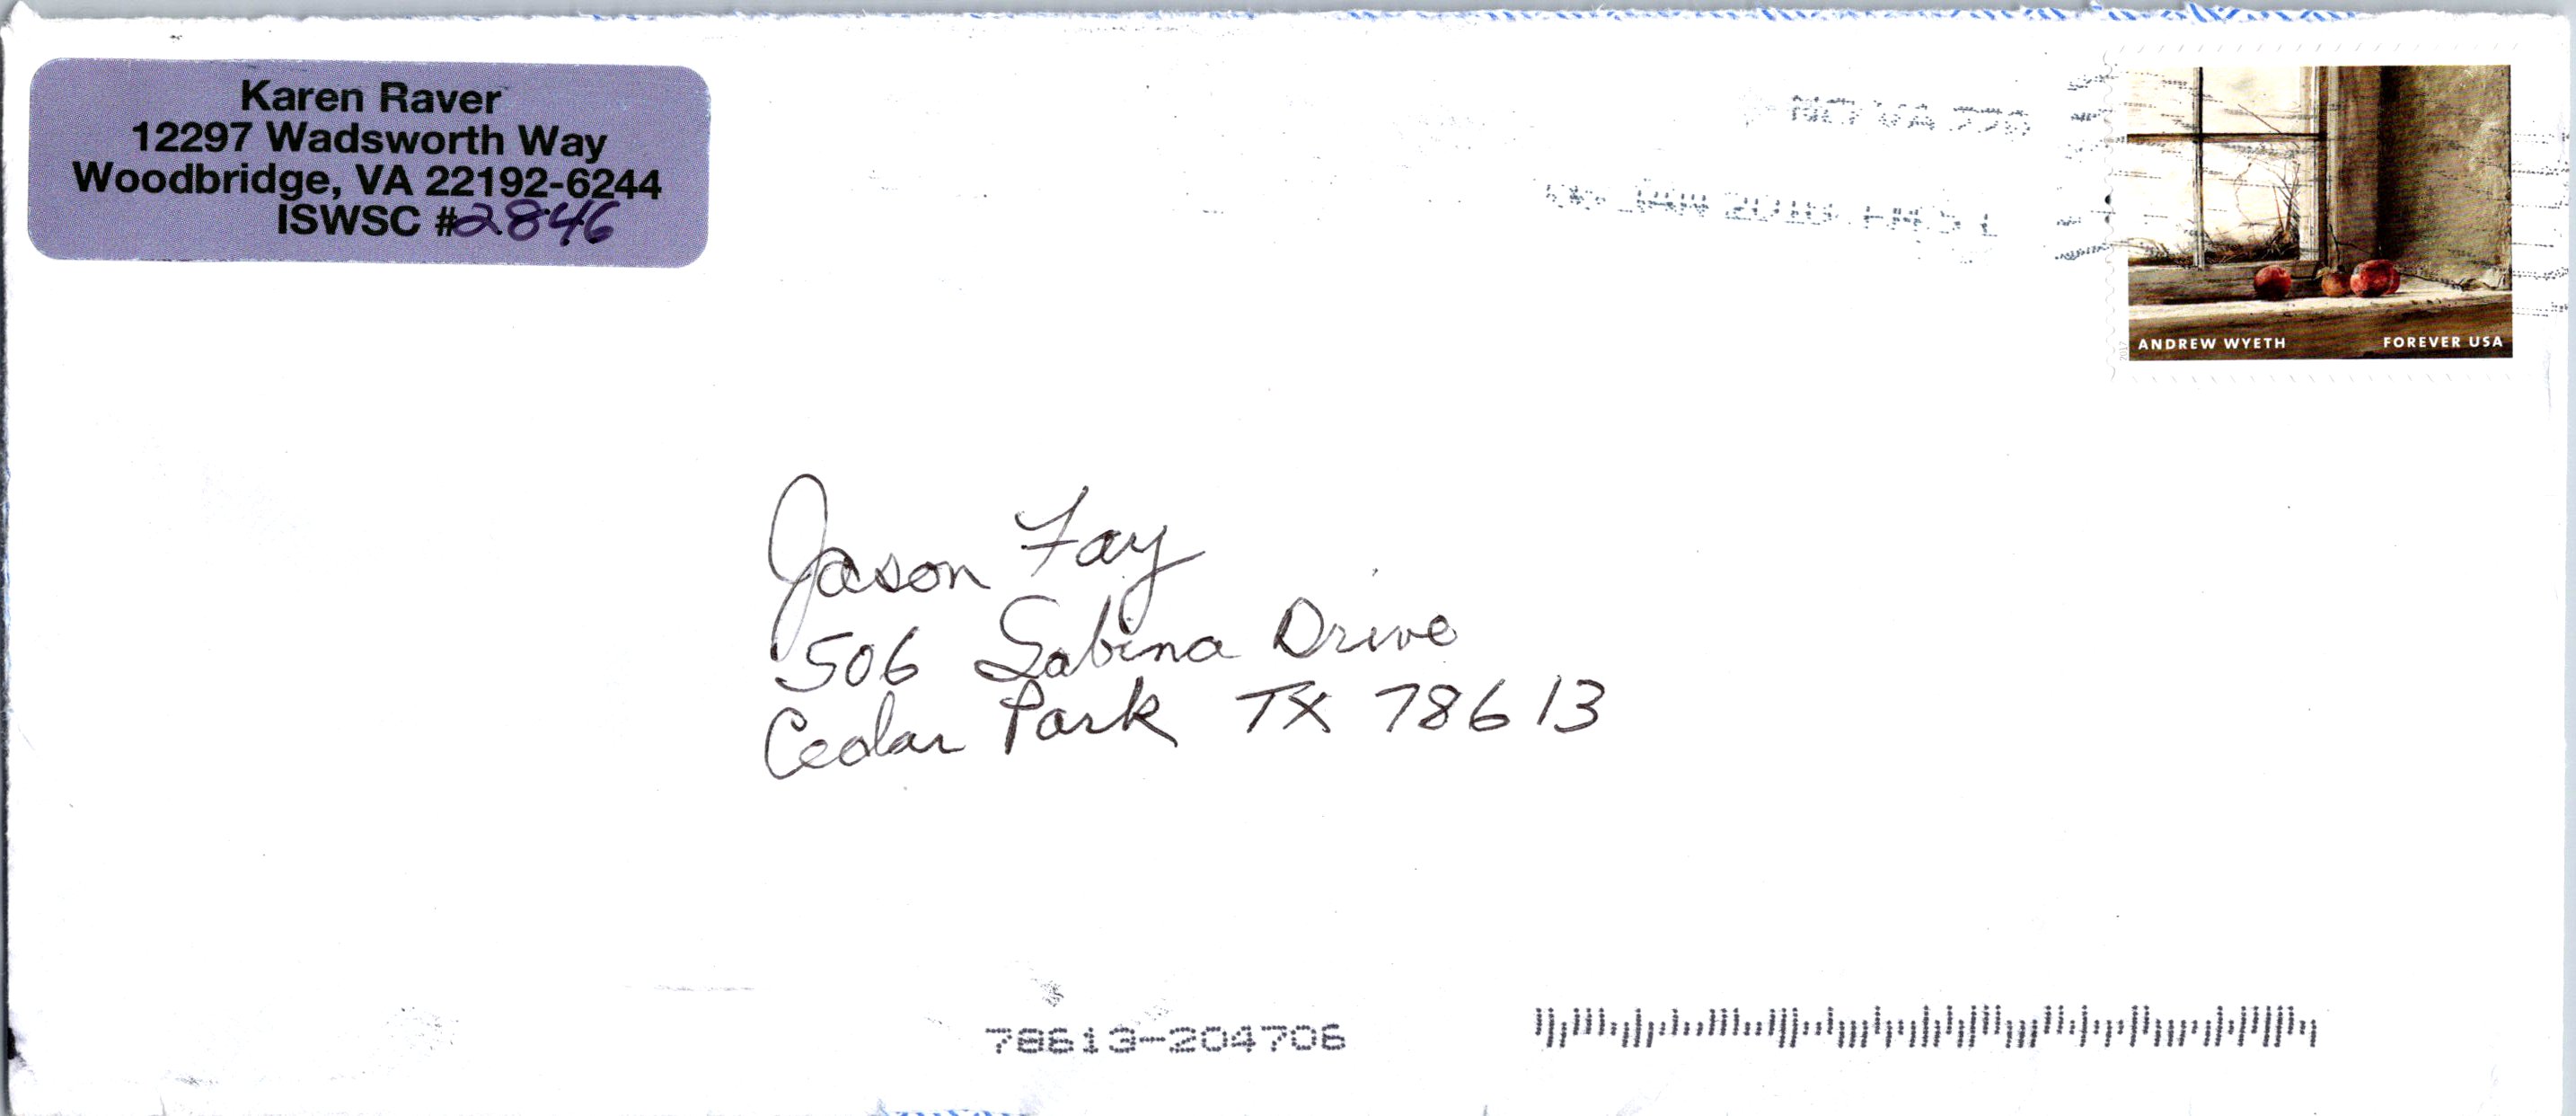 Karen Raver
12297 Wadsworth Way
Woodbridge, VA 22192-6244
ISWSC #2846
JAN 2018
2017
ANDREW WYETH FOREVER USA
Jason Fay
506 Sabina Drive
Cedar Park TX 78613
78613-204706